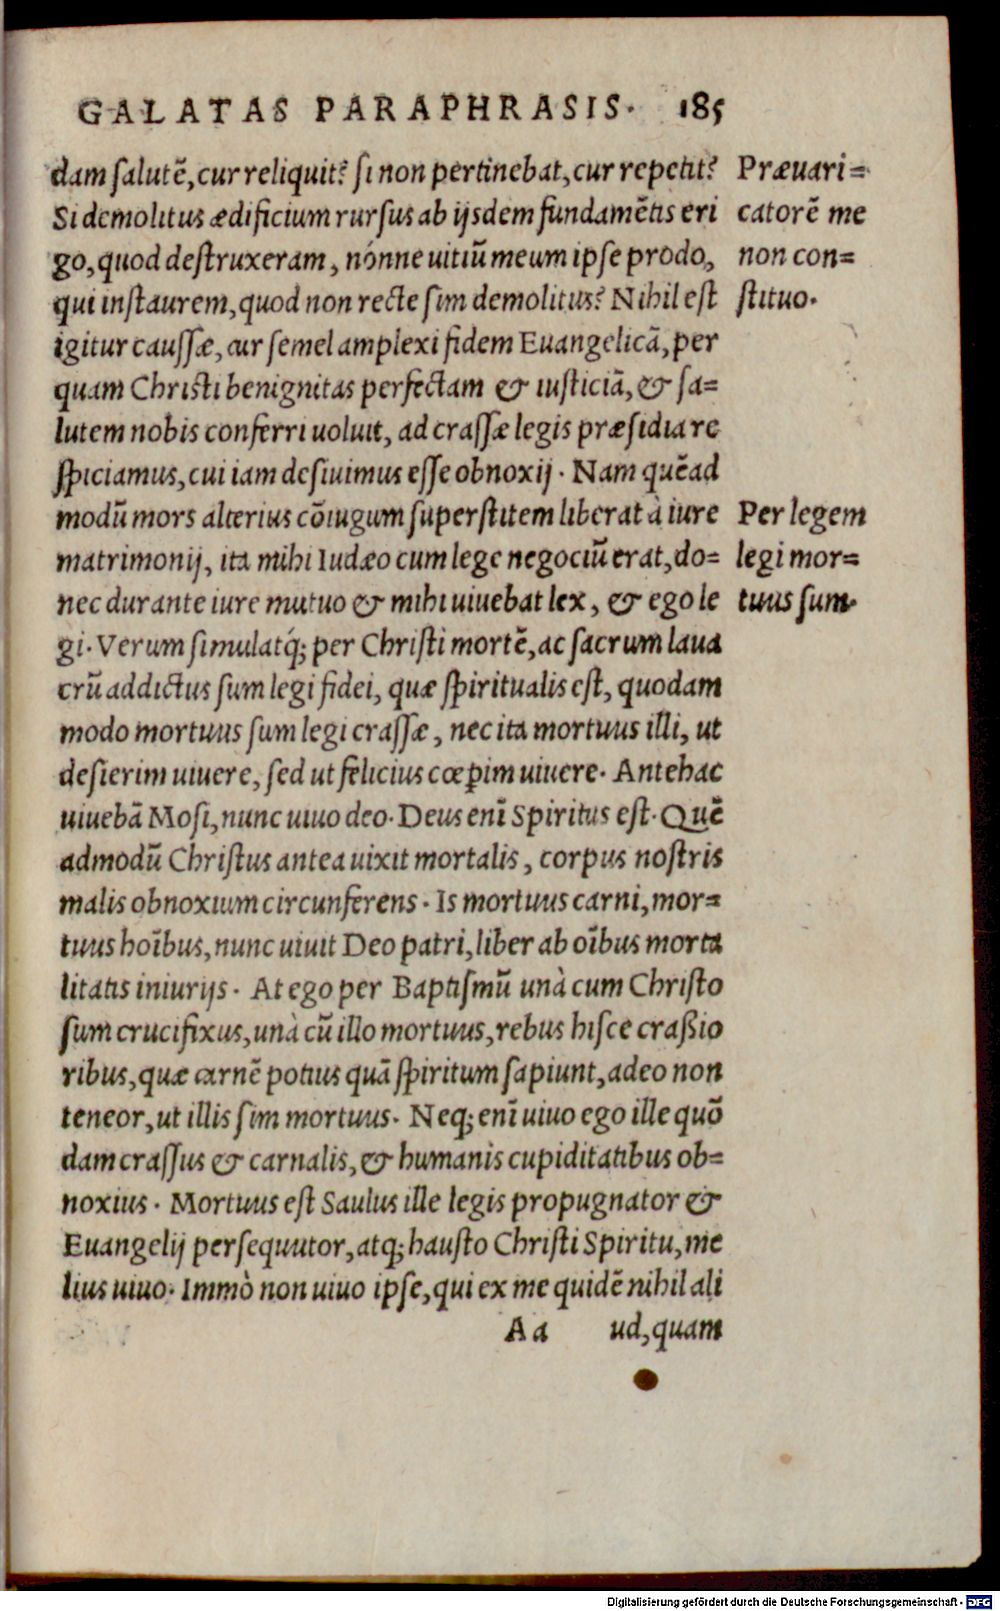 GALATAS PARAPHRASIS. 185
dam salutē, cur reliquit? si non pertinebat, cur repetit?
Si demolitus ædificium rursus ab ijsdem fundamētis eri
go, quod destruxeram, nónne uitiū meum ipse prodo,
qui instaurem, quod non recte sim demolitus? Nihil est
igitur caussæ, cur semel amplexi fidem Euangelicā, per
quam Christi benignitas perfectam & iusticiā, & sa=
lutem nobis conferri uoluit, ad crassæ legis præsidia re
spiciamus, cui iam desiuimus esse obnoxij. Nam quēad
modū mors alterius cōiugum superstitem liberat à iure
matrimonij, ita mihi Iudæo cum lege negociū erat, do=
nec durante iure mutuo & mihi uiuebat lex, & ego le
gi. Verum simulatq́; per Christi mortē, ac sacrum laua
crū addictus sum legi fidei, quæ spiritualis est, quodam
modo mortuus sum legi crassæ, nec ita mortuus illi, ut
desierim uiuere, sed ut felicius cœperim uiuere. Antehac
uiuebā Mosi, nunc uiuo deo. Deus enī Spiritus est. Quē
admodū Christus antea uixit mortalis, corpus nostris
malis obnoxium circunferens. Is mortuus carni, mor=
tuus hoībus, nunc uiuit Deo patri, liber ab oībus morta
litatis iniurijs. At ego per Baptismū unà cum Christo
sum crucifixus, unà cū illo mortuus, rebus hisce craßio
ribus, quæ carnē potius quā spiritum sapiunt, adeo non
teneor, ut illis sim mortuus. Neq; enī uiuo ego ille quō
dam crassus & carnalis, & humanis cupiditatibus ob=
noxius. Mortuus est Saulus ille legis propugnator &
Euangelij persequutor, atq; hausto Christi Spiritu, me
lius uiuo. Immò non uiuo ipse, qui ex me quidē nihil ali
Aa ud, quam
Præuari=
catorē me
non con=
stituo.
Per legem
legi mor=
tuus sum.
Digitalisierung gefördert durch die Deutsche Forschungsgemeinschaft - DFG